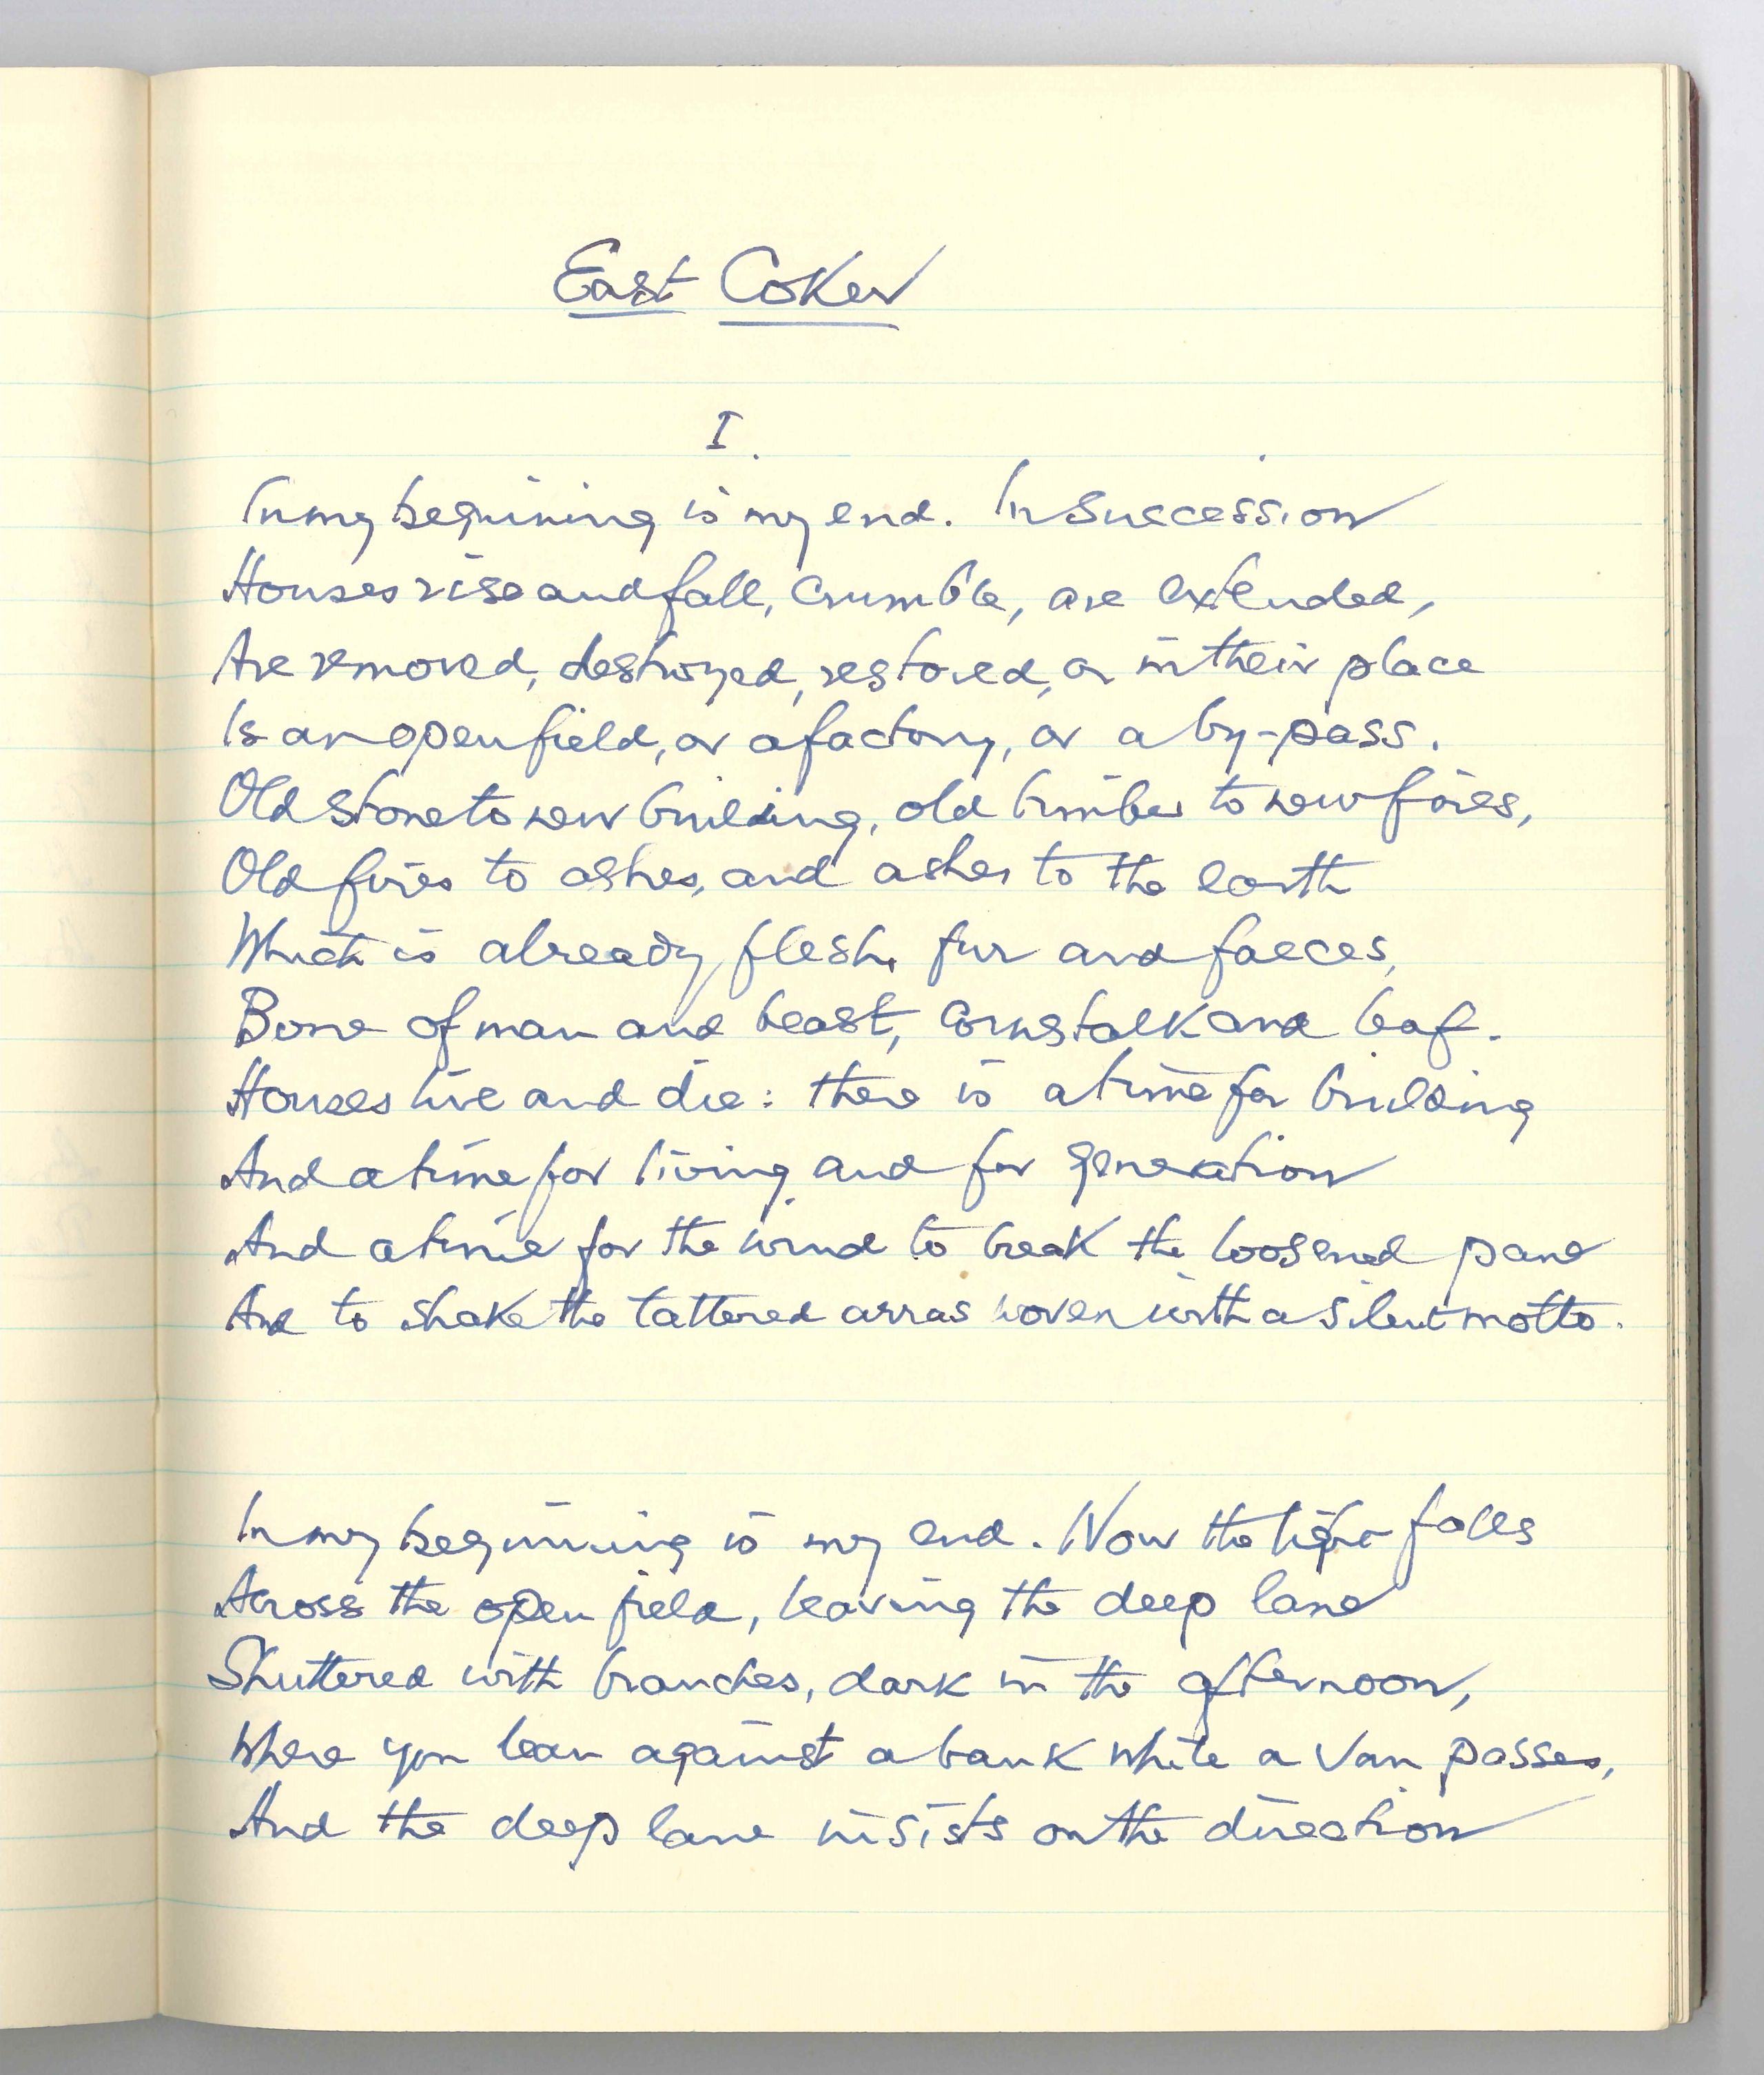 East Coker
I.
In my beginning is my end. In succession
Houses rise and fall, crumble, are extended,
Are removed, destroyed, restored, or in their place
Is an open field, or a factory, or a by-pass.
Old stone to new building, old timber to new fires,
Old fires to ashes, and ashes to the earth
Which is already flesh, fur and faeces,
Bone of man and beast, cornstalk and leaf.
Houses live and die: there is a time for building
And a time for living and for generation
And a time for the wind to break the loosened pane
And to shake the tattered arras woven with a silent motto.
In my beginning is my end. Now the light falls
Across the open field, leaving the deep lane
Shuttered with branches, dark in the afternoon,
Where you lean against a bank while a van passes,
And the deep lane insists on the direction